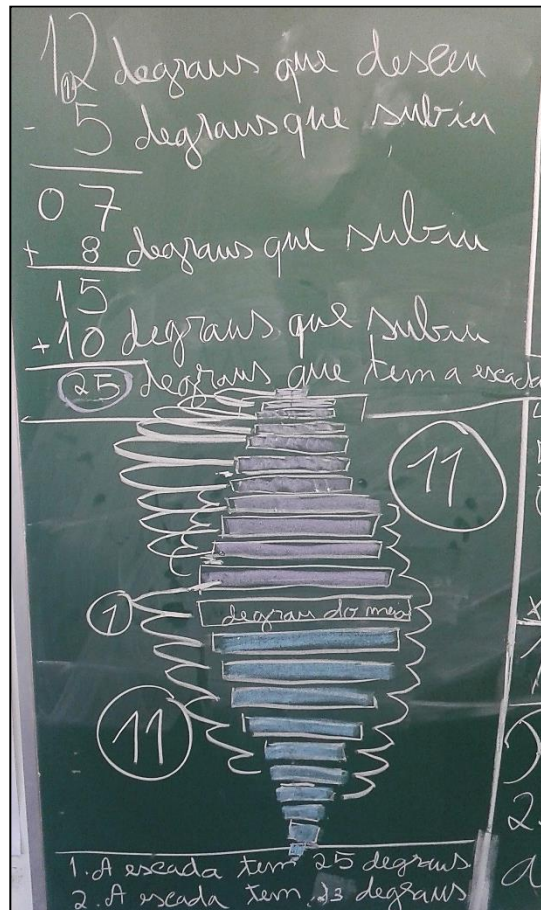 12 degraus que desceu
- 5 degraus que subiu
07
+ 8 degraus que subiu
15
+10 degraus que subiu
25 degraus que tem a escada
11
1
degrau do meio
11
1. A escada tem 25 degraus
2. A escada tem 23 degraus